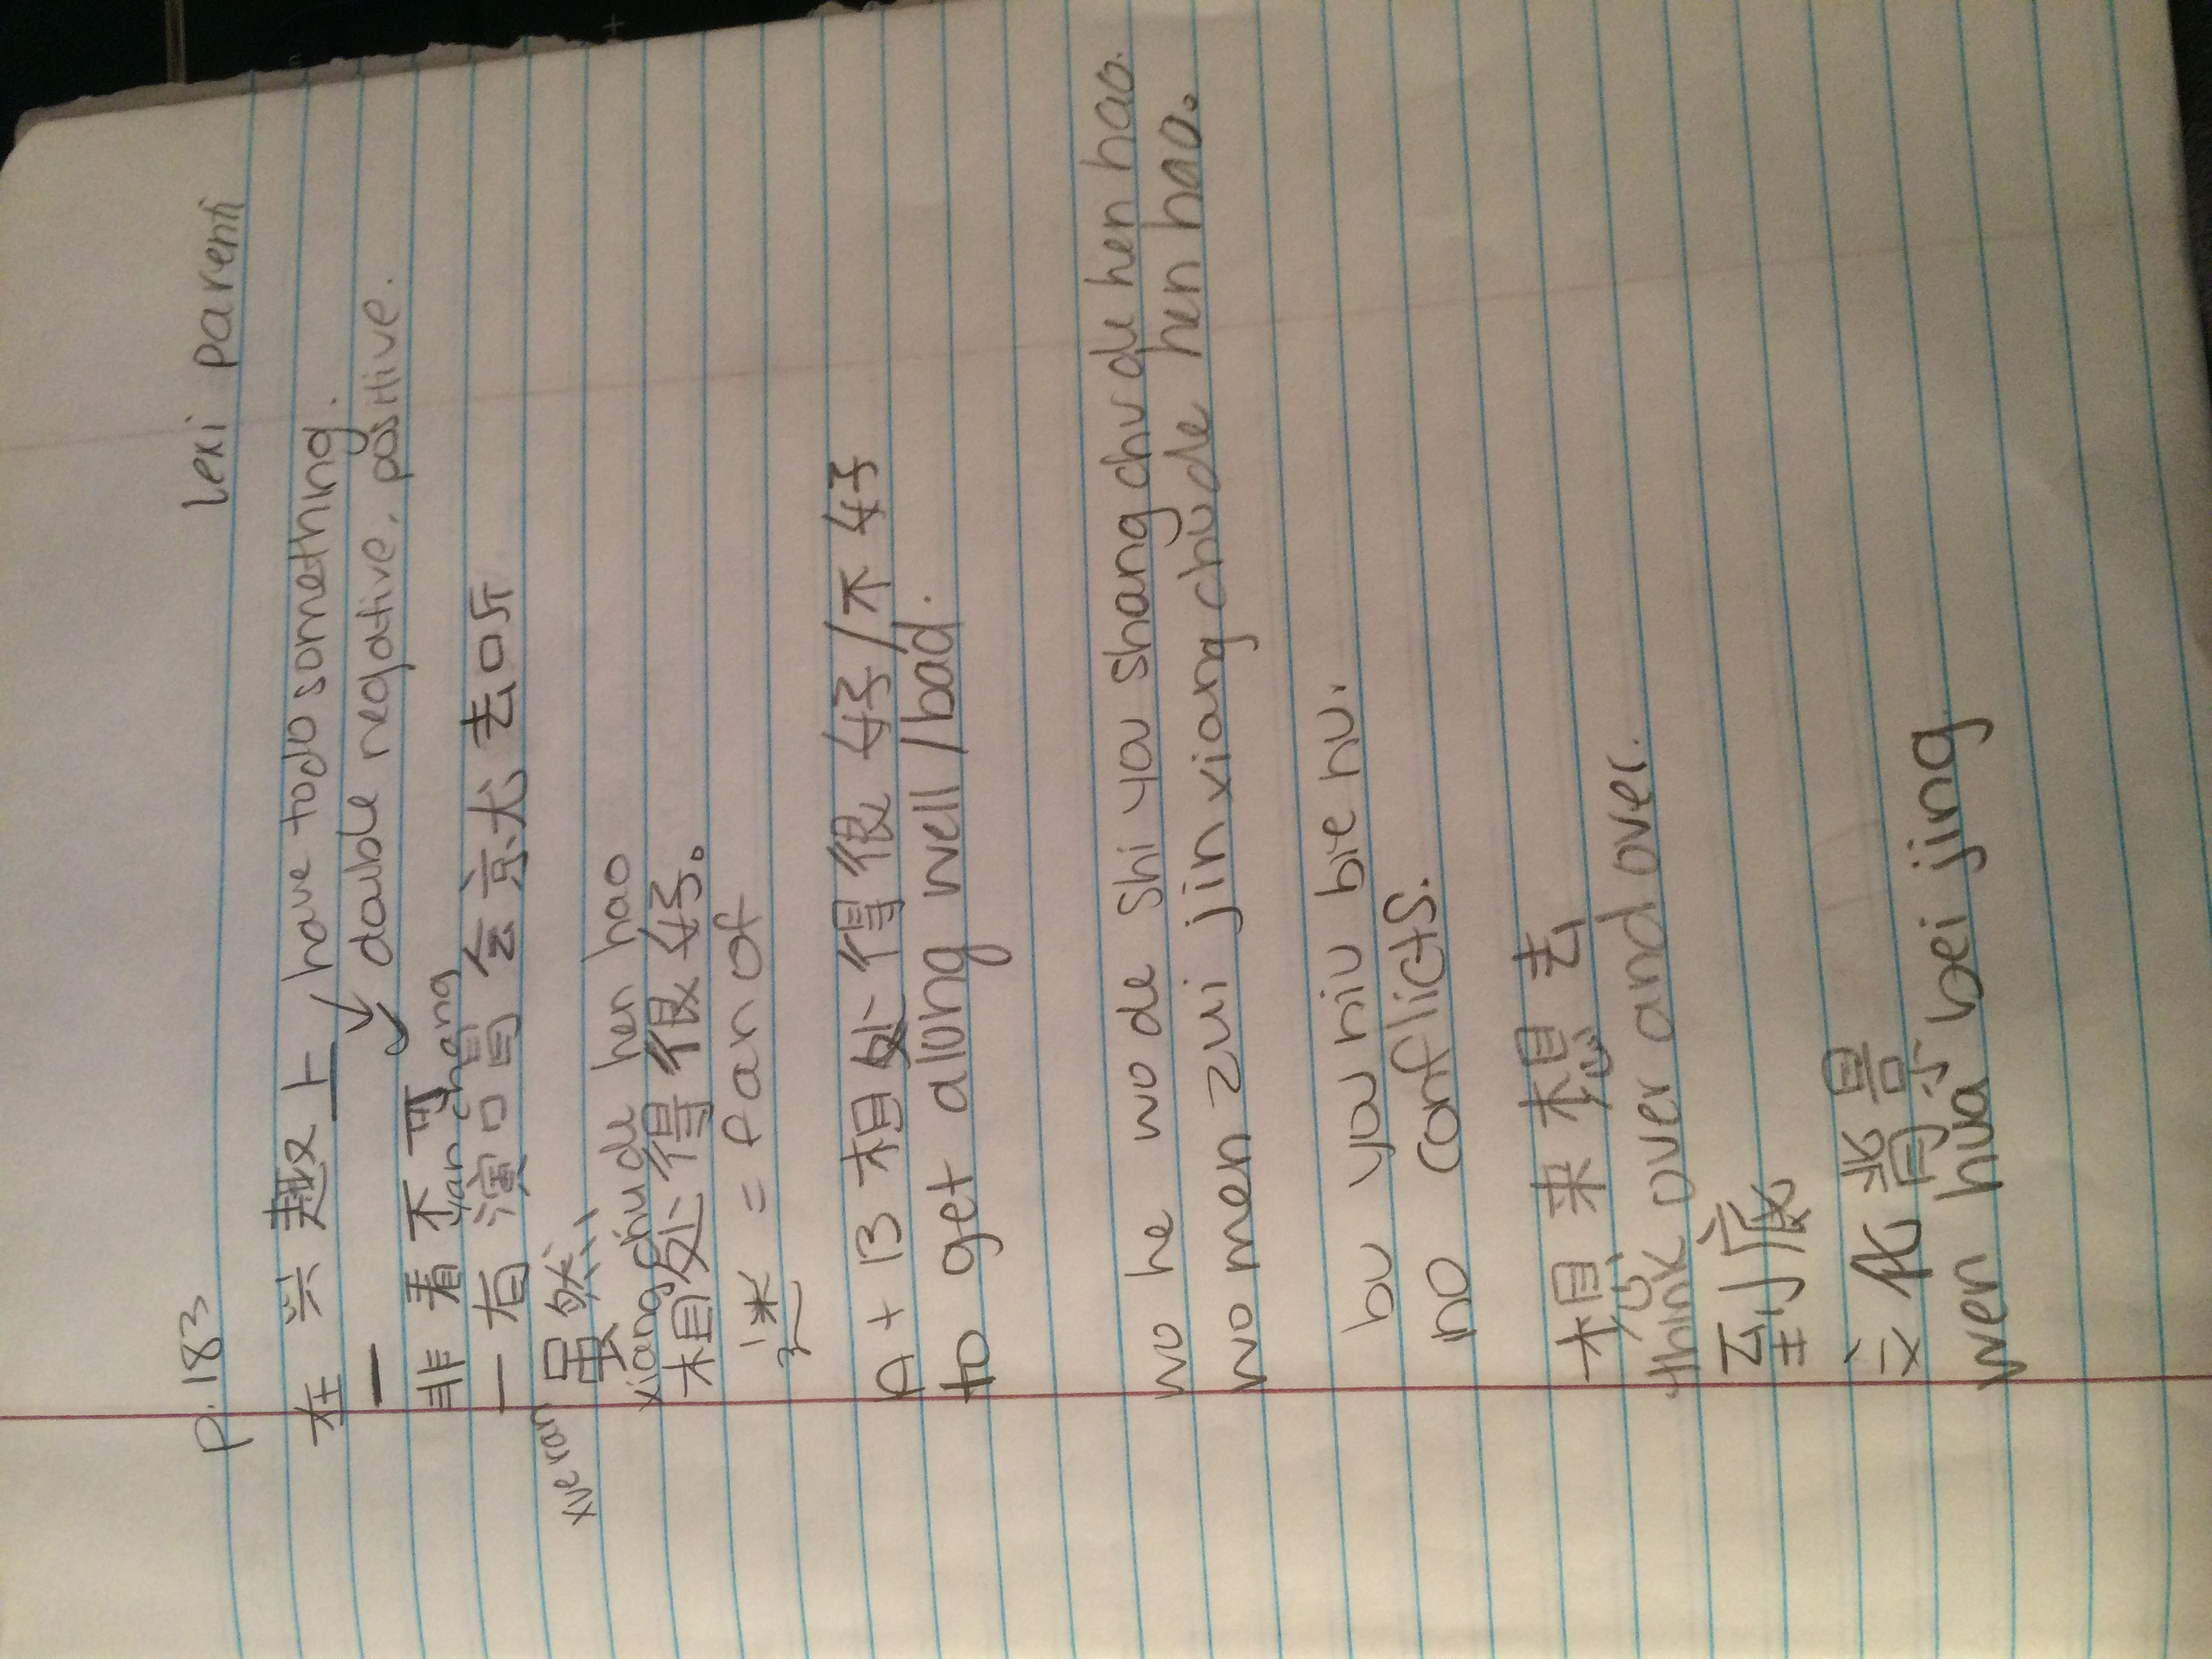 p. 183
lexi parenti
在 兴 趣 上 have to do something.
一 double negative, positive.
非 看 不 可
yan chang
一 看 演 唱 会 就 去 听
xue ran 虽然
xiang chu de hen hao
相处得很好。
迷 = fan of
A + B 相处 得 很 好/不 好
to get along well/bad.
wo he wo de shi you shang chu de hen hao.
wo men zui jin xiang chu de hen hao。
bu you niu bie nu.
no conflicts.
想 来 想 去
think over and over.
到底
文化背景
wen hua bei jing